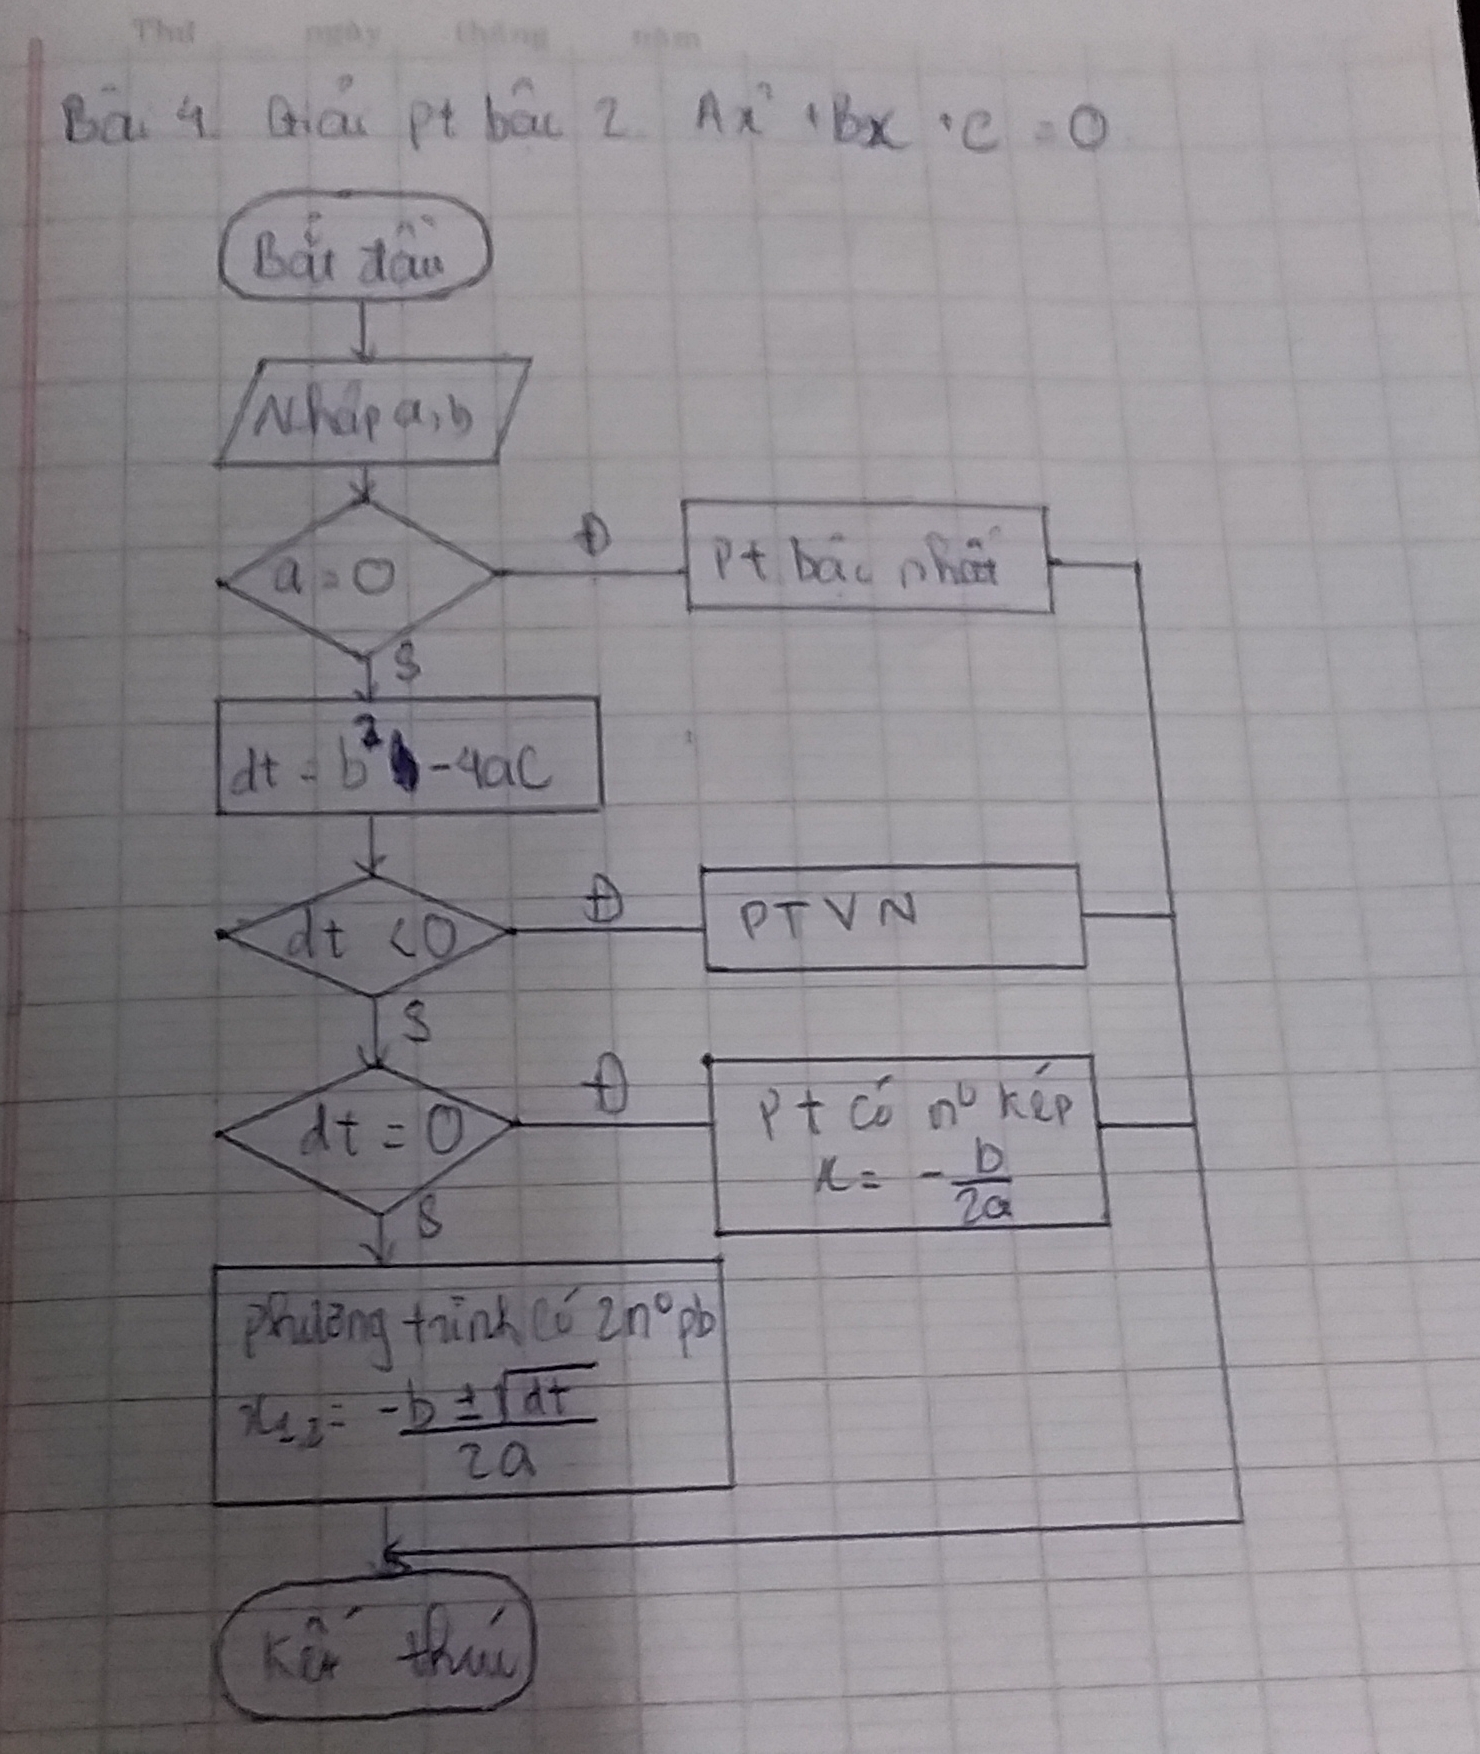 Thứ ngày tháng năm
Bài 4 Giải pt bậc 2 Ax² + Bx + C = 0
Bắt đầu
Nhập a, b
a = 0
Đ
Pt bậc nhất
S
dt = b² - 4ac
dt < 0
Đ
PTVN
S
dt = 0
Đ
Pt có n⁰ kép
x = - b/2a
S
Phương trình có 2n⁰ pb
x₁,₂ = -b ± √dt / 2a
Kết thúc